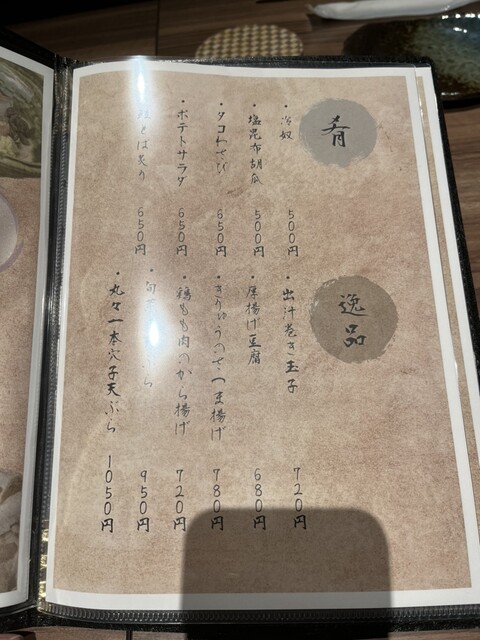 肴
・冷奴 500円
・塩昆布胡瓜 500円
・タコわさび 650円
・ポテトサラダ 650円
とば炙り 650円
逸品
・出汁巻き玉子 720円
・厚揚げ豆腐 680円
780円
・鶏もも肉のから揚げ 720円
950円
・丸々一本穴子天ぷら 1050円